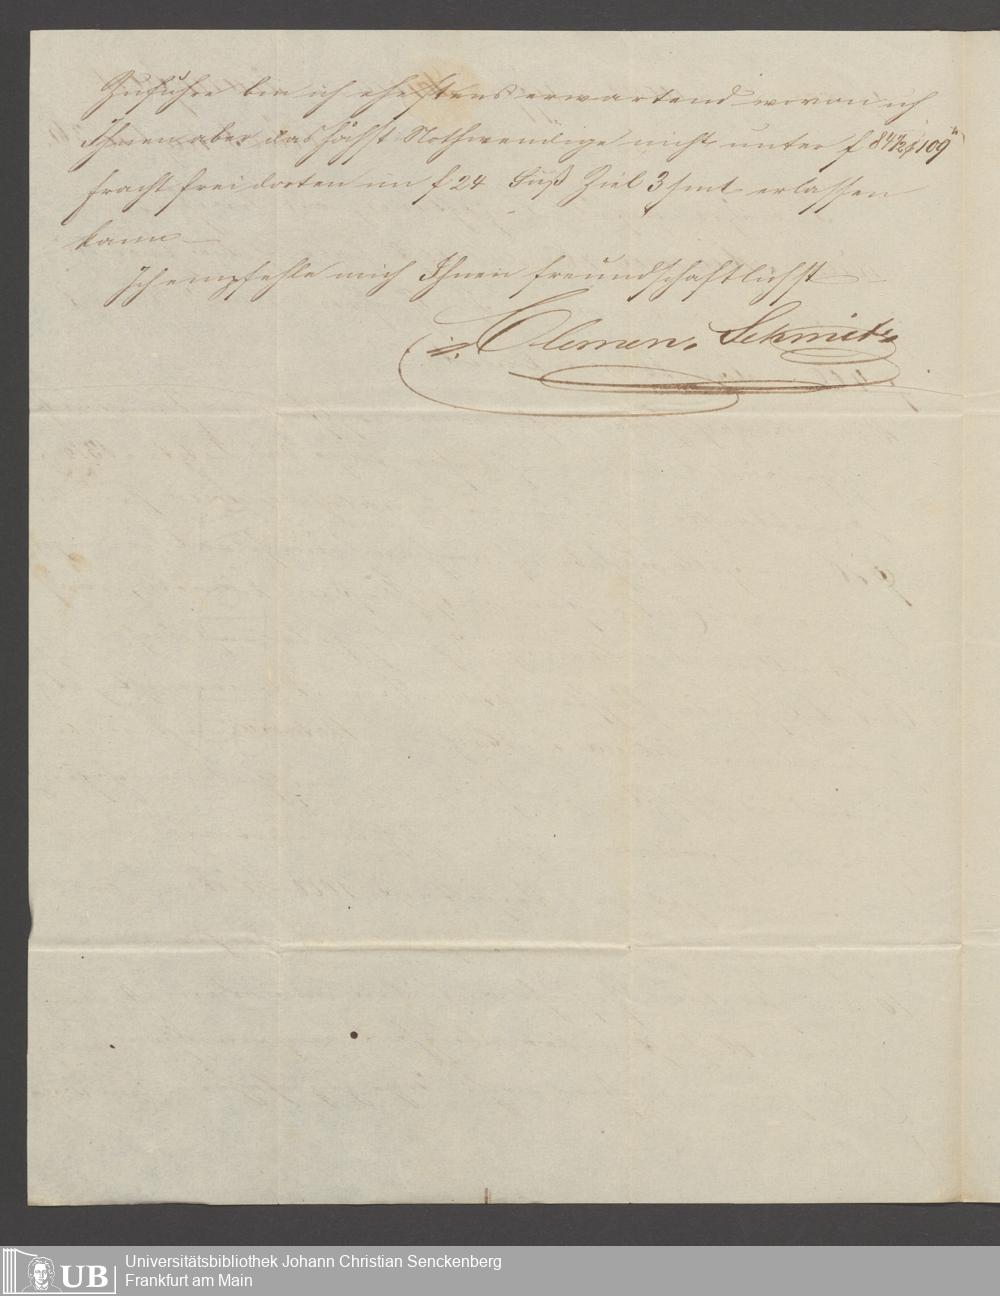 Zufuhre bin ich ehestens erwartend wovon ich
Ihnen aber das höchst Nothwendige nicht unter f 84½ 109
fracht frei dorten im f 24 Fuß Ziel 3 mt erlassen
kann
Ich empfehle mich Ihnen freundschaftlichst
Clemen. Schmitz
UB
Universitätsbibliothek Johann Christian Senckenberg
Frankfurt am Main